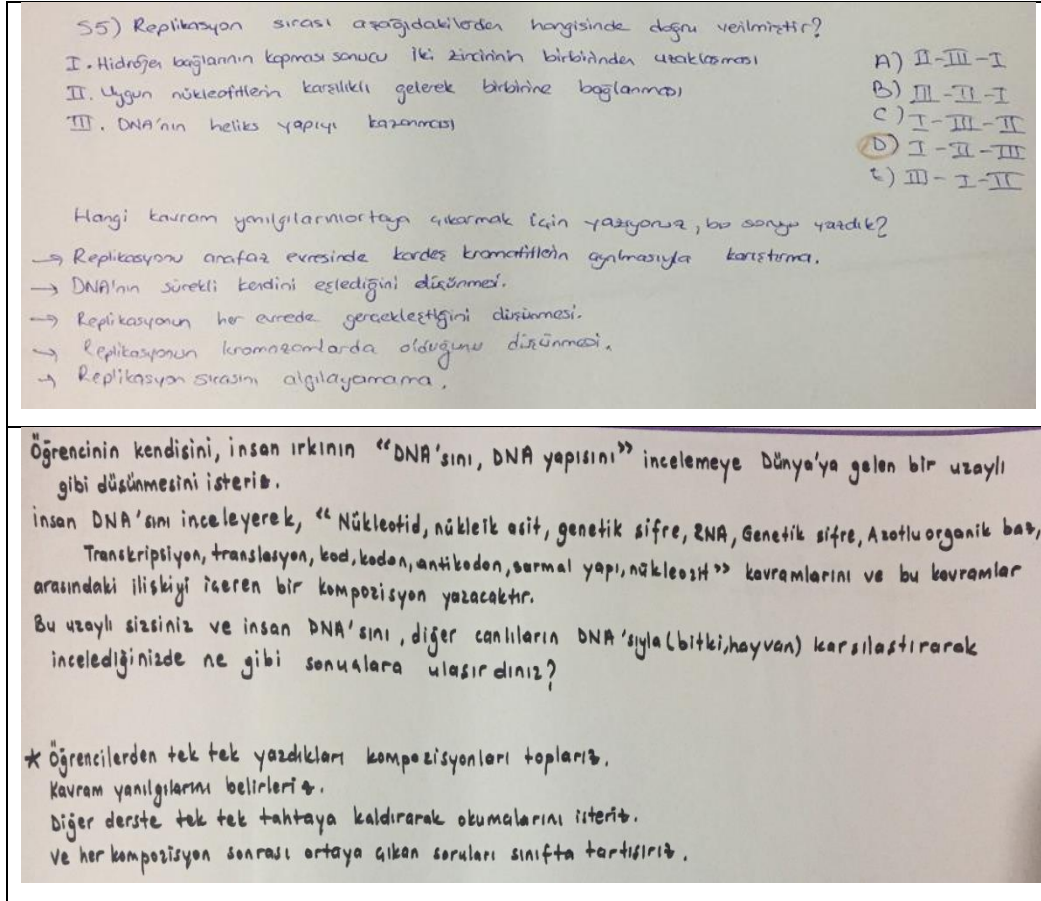 S5) Replikasyon sırası aşağıdakilerden hangisinde doğru verilmiştir?
I. Hidrojen bağlarının kopması sonucu iki zincirinin birbirinden uzaklaşması
II. Uygun nükleotitlerin karşılıklı gelerek birbirine bağlanması
III. DNA'nın heliks yapıyı kazanması
A) II-III-I
B) III-II-I
C) I-III-II
D) I-II-III
E) III-I-II
Hangi kavram yanılgılarını ortaya çıkarmak için yazıyoruz, bu soruyu yazdık?
→ Replikasyonu anafaz evresinde kardeş kromatitlerin ayrılmasıyla karıştırma.
→ DNA'nın sürekli kendini eşlediğini düşünmesi.
→ Replikasyonun her evrede gerçekleştiğini düşünmesi.
→ Replikasyonun kromozomlarda olduğunu düşünmesi.
→ Replikasyon sırasını algılayamama.
Öğrencinin kendisini, insan ırkının “DNA'sını, DNA yapısını” incelemeye Dünya'ya gelen bir uzaylı
gibi düşünmesini isteriz.
insan DNA'sını inceleyerek, “Nükleotid, nükleik asit, genetik şifre, RNA, Genetik şifre, Azotlu organik baz,
Transkripsiyon, translasyon, kod, kodon, antikodon, sarmal yapı, nükleozit” kavramlarını ve bu kavramlar
arasındaki ilişkiyi içeren bir kompozisyon yazacaktır.
Bu uzaylı sizsiniz ve insan DNA'sını, diğer canlıların DNA'sıyla (bitki, hayvan) karşılaştırarak
incelediğinizde ne gibi sonuçlara ulaşırdınız?
* Öğrencilerden tek tek yazdıkları kompozisyonları toplarız.
Kavram yanılgılarını belirleriz.
Diğer derste tek tek tahtaya kaldırarak okumalarını isteriz.
ve her kompozisyon sonrası ortaya çıkan soruları sınıfta tartışırız.